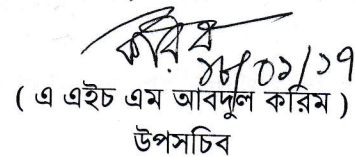 করিম
১৮/০১/১৭
( এ এইচ এম আবদুল করিম )
উপসচিব